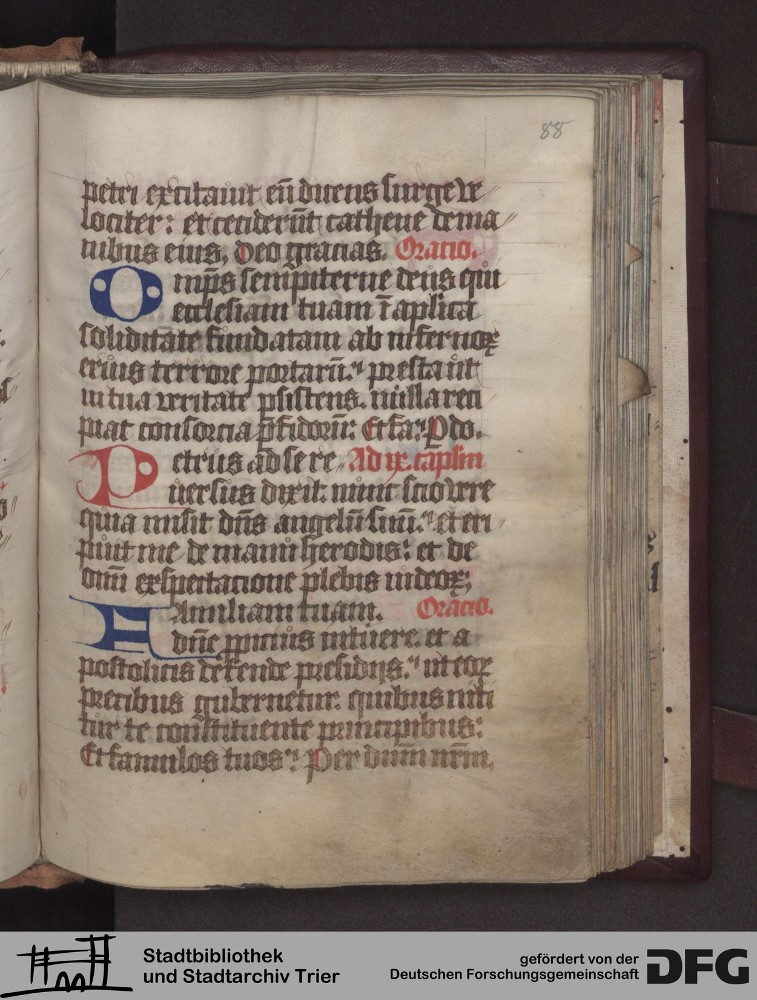 88
petri excitauit eū dicens surge ve
lociter : et ceciderūt cathene de ma
nibus eius, Deo gracias. Oracio.
Omp̄s sempiterne deus qui
ecclesiam tuam ī aplica
soliditate fundatam ab infernoꝝ
erius terrore portarū. presta ut
in tua veritate ꝑsistens. nulla reci
piat consorcia ꝑfidorū: Et fa. P do.
Petrus ad se re. Ad ix. cāplm
uersus dixit nunc scio vere
quia misit dn̄s angelū suū. et eri
puit me de manu herodis: et de
omī exspectacione plebis iudeoꝝ;
Familiam tuam. Oracio.
dn̄e ꝓpicius intuere. et a
postolicis defende presidijs. ut eoꝝ
precibus gubernetur. quibus niti
tur te constituente principibus:
Et famulos tuos. Per dūm nr̄m.
Stadtbibliothek
und Stadtarchiv Trier
gefördert von der
Deutschen Forschungsgemeinschaft
DFG